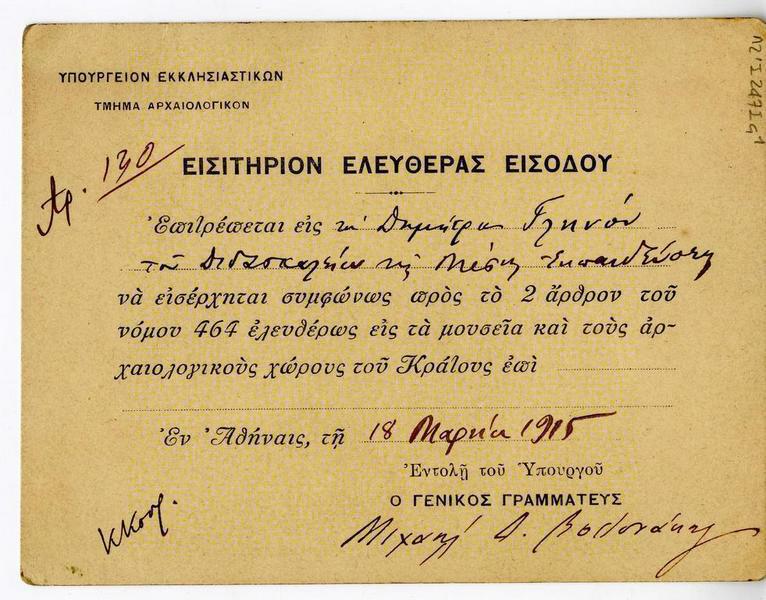 ΥΠΟΥΡΓΕΙΟΝ ΕΚΚΛΗΣΙΑΣΤΙΚΩΝ
ΤΜΗΜΑ ΑΡΧΑΙΟΛΟΓΙΚΟΝ
Αρ. 130
ΕΙΣΙΤΗΡΙΟΝ ΕΛΕΥΘΕΡΑΣ ΕΙΣΟΔΟΥ
Ἐπιτρέπεται εἰς Δημήτριον Γληνόν
τοῦ Διδασκαλείου τῆς Μέσης Ἐκπαιδεύσεως
νὰ εἰσέρχηται συμφώνως πρὸς τὸ 2 ἄρθρον τοῦ
νόμου 464 ἐλευθέρως εἰς τὰ μουσεῖα καὶ τοὺς ἀρ-
χαιολογικοὺς χώρους τοῦ Κράτους ἐπὶ
Ἐν Ἀθήναις, τῇ 18 Μαρτίου 1915
Ἐντολῇ τοῦ Ὑπουργοῦ
Ο ΓΕΝΙΚΟΣ ΓΡΑΜΜΑΤΕΥΣ
Μιχαὴλ Δ. Βολονάκης